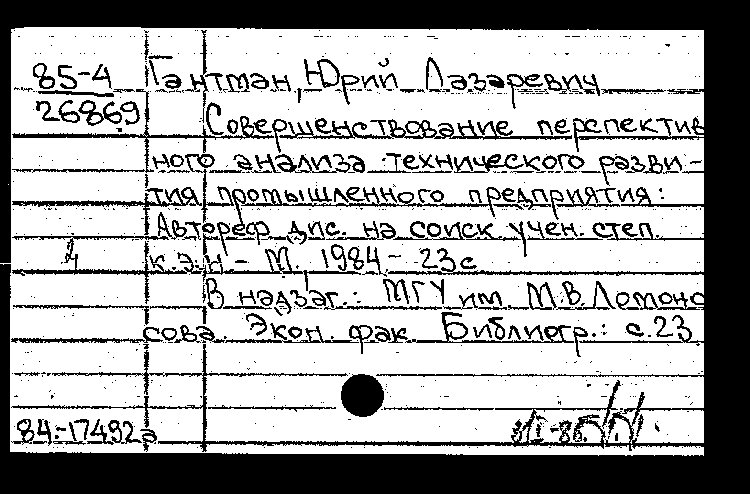 85-4 Гантман, Юрий Лазаревич
26869
Совершенствование перспектив
ного анализа технического разви-
тия промышленного предприятия:
Автореф дис. на соиск. учен. степ.
к.э.н. - М., 1984 - 23с.
В надзаг.: МГУ им. М.В. Ломоно
сова. Экон. фак. Библиогр.: с.23
84-17492а